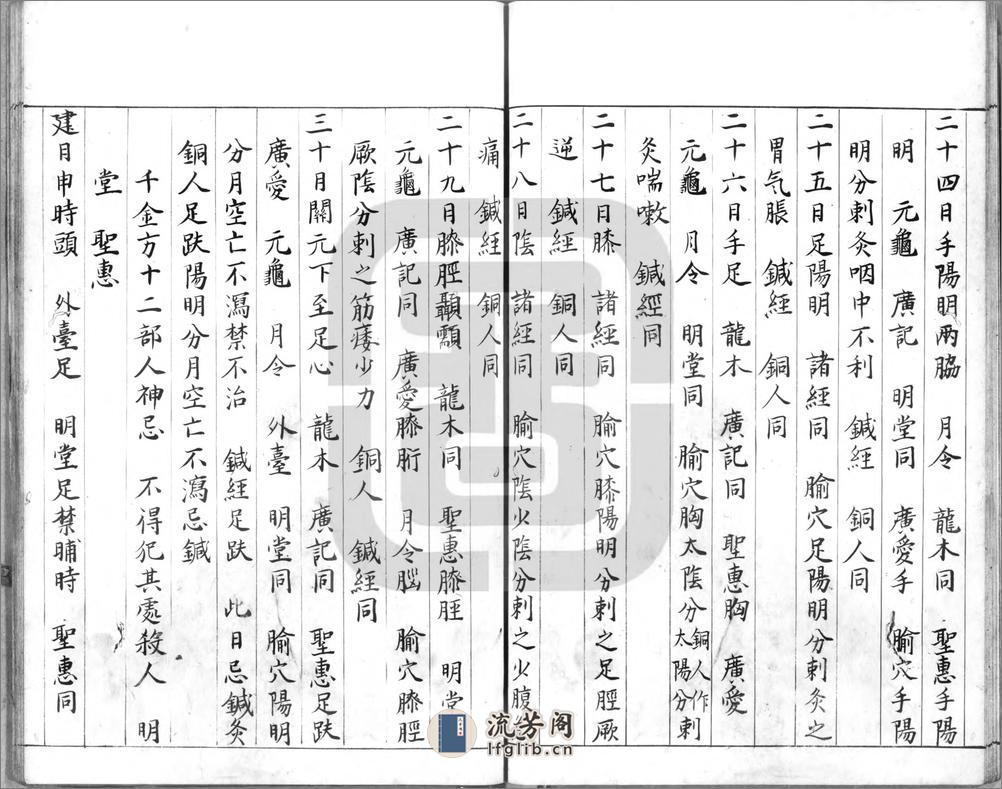 二十四日手陽明兩脇　月令　龍木同　聖惠手陽
明　元龜　廣記　明堂同　廣愛手　腧穴手陽
明分刺灸咽中不利　鍼經　銅人同
二十五日足陽明　諸經同　腧穴足陽明分刺灸之
胃氣脹　鍼經　銅人同
二十六日手足　龍木　廣記同　聖惠胸　廣愛
元龜　月令　明堂同　腧穴胸太陰分銅人作太陽分刺
灸喘嗽　鍼經同
二十七日膝　諸經同　腧穴膝陽明分刺之足脛厥
逆　鍼經　銅人同
二十八日陰　諸經同　腧穴陰少陰分刺之少腹
痛　鍼經　銅人同
二十九日膝脛顳顬　龍木同　聖惠膝脛　明堂
元龜　廣記同　廣愛膝胻　月令腦　腧穴膝脛
厥陰分刺之筋痿少力　銅人　鍼經同
三十日關元下至足心　龍木　廣記同　聖惠足趺
廣愛　元龜　月令　外臺　明堂同　腧穴陽明
分月空亡不瀉禁不治　鍼經足趺　此日忌鍼灸
銅人足趺陽明分月空亡不瀉忌鍼
千金方十二部人神忌　不得犯其處殺人　明
堂　聖惠
建日申時頭　外臺足　明堂足禁晡時　聖惠同
流芳阁
lfglib.cn